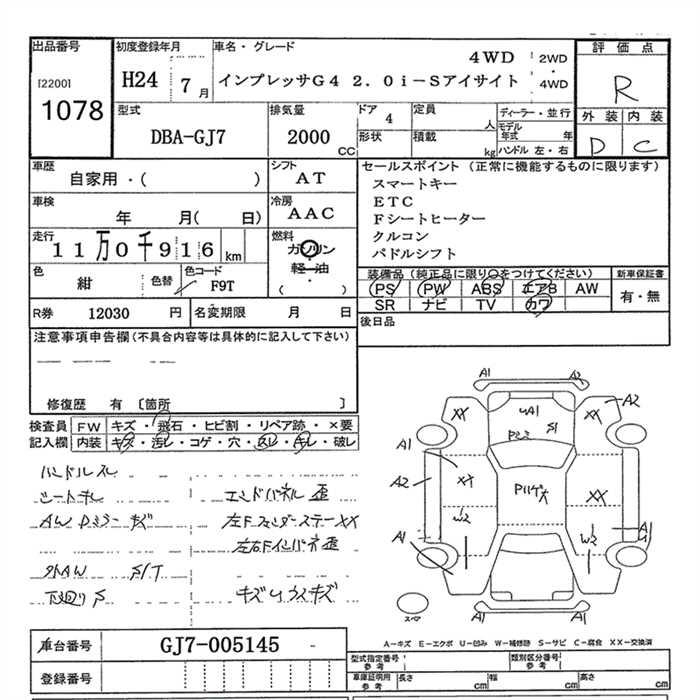 出品番号 初度登録年月 車名・グレード 評価点
[2200] H24 7月 インプレッサG4 2.0i-Sアイサイト 4WD 2WD・4WD R
1078 型式 排気量 ドア 定員 ディーラー・並行 外装 内装
DBA-GJ7 2000 CC 4 人 モデル年式 年 D C
形状 積載 kg ハンドル 左・右
車歴 シフト セールスポイント(正常に機能するものに限ります)
自家用・( ) AT スマートキー
車検 冷房 ETC
年 月( 日) AAC Fシートヒーター
走行 燃料 クルコン
11万0千916 km ガソリン パドルシフト
軽・油
( )
色 色替 色コード 装備品(純正品に限り○をつけてください) 新車保証書
紺 F9T PS PW ABS エアB AW 有・無
SR ナビ TV カワ
R券 12030 円 名変期限 月 日 後日品
注意事項申告欄(不具合内容等は具体的に記入して下さい)
修復歴 有 〔箇所 〕
検査員 FW キズ・飛石・ヒビ割・リペア跡・×要
記入欄 内装 キズ・汚レ・コゲ・穴・スレ・キレ・破レ
ハンドルスレ
シートキレ エンドパネル歪
AW Dミラーキズ 左Fフェンダーステー XX
左右Fインパネ歪
外AW S/T
下廻りS キズ U ウスキズ
A1 A2
XX UA1 XX A2
S1
A1
A2 XX XX
W2 W2 A1
A1
スペア
A1 A1
A-キズ E-エクボ U-凹み W-補修跡 S-サビ C-腐食 XX-交換済
車台番号 GJ7-005145 -
登録番号
型式指定番号 参考 類別区分番号 参考
車庫証明用 参考 長さ cm 幅 cm 高さ cm